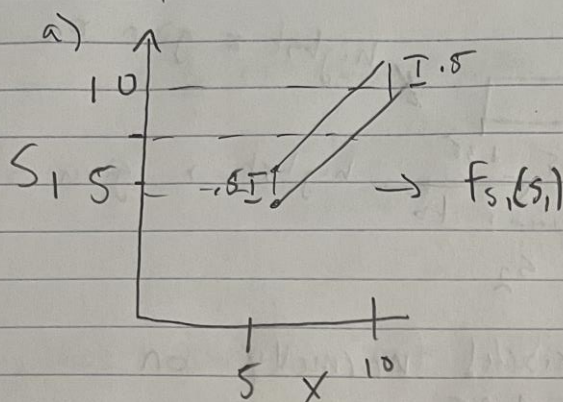 a)
10
I .5
S1 5
-.5 I
→ fs1(s1)
5 X 10